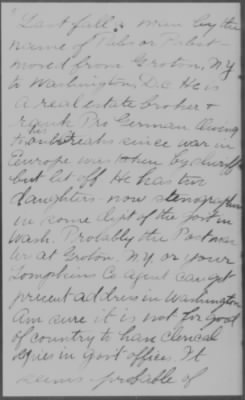 "Last fall a man by the
name of Pabs or Pabst
moved from Groton, NY
to Washington, D.c. He is
a real estate broker &
rank Pro German owing
to his outbreaks since war in
Europe was taken by sheriff
but let off. He has two
daughters now stenographers
in some dept of the govt in
Wash. Probably the Postmas
ter at Groton, NY or your
Tompkins Co agent can get
present address in Washington
Am sure it is not for good
of country to have clerical
spies in govt offices. It
seems probable of